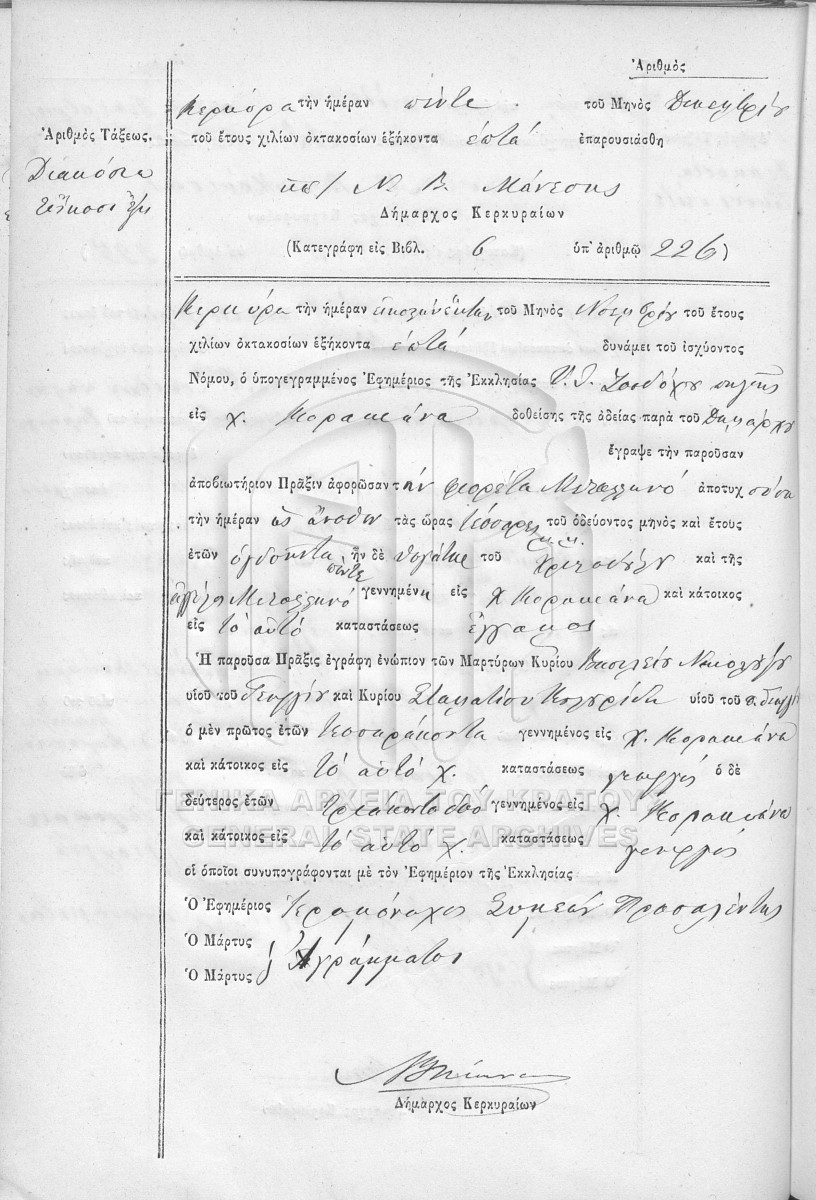 Ἀριθμὸς
Κερκύρα τὴν ἡμέραν πέντε τοῦ Μηνὸς Δεκεμβρίου
Ἀριθμὸς Τάξεως.
τοῦ ἔτους χιλίων ὀκτακοσίων ἑξήκοντα ἑπτά ἐπαρουσιάσθη
Διακόσια
εἴκοσι ἕξι
Ν. Β. Μάνεσης
Δήμαρχος Κερκυραίων
(Κατεγράφη εἰς Βιβλ. 6 ὑπ' ἀριθμῷ 226)
Κερκύρα τὴν ἡμέραν τοῦ Μηνὸς Νοεμβρίου τοῦ ἔτους
χιλίων ὀκτακοσίων ἑξήκοντα ἑπτά δυνάμει τοῦ ἰσχύοντος
Νόμου, ὁ ὑπογεγραμμένος Ἐφημέριος τῆς Ἐκκλησίας Υ. Θ. Ζωοδόχου πηγῆς
εἰς χ. Κορακιάνα δοθείσης τῆς ἀδείας παρὰ τοῦ Δημάρχου
ἔγραψε τὴν παροῦσαν
ἀποβιωτήριον Πρᾶξιν ἀφορῶσαν τὴν Φιορέτα Μεταλληνό ἀποτυχοῦσα
τὴν ἡμέραν ὡς ἄνοθεν τὰς ὥρας τέσσαρες μ.μ. τοῦ ὁδεύοντος μηνὸς καὶ ἔτους
ἐτῶν ὀγδοῆντα πέντε ἦν δὲ θυγάτηρ τοῦ Χριστοδούλου καὶ τῆς
Ἀγγέλως Μεταλληνό γεννημένη εἰς χ Κορακιάνα καὶ κάτοικος
εἰς τὸ αὐτό καταστάσεως ἔγγαμος
Ἡ παροῦσα Πρᾶξις ἐγράφη ἐνώπιον τῶν Μαρτύρων Κυρίου Βασιλείου Νικολούζου
υἱοῦ τοῦ Γεωργίου καὶ Κυρίου Σταματίου Κολυρίδη υἱοῦ τοῦ
ὁ μὲν πρῶτος ἐτῶν τεσσαράκοντα γεννημένος εἰς χ. Κορακιάνα
καὶ κάτοικος εἰς τὸ αὐτό χ. καταστάσεως γεωργός ὁ δὲ
δεύτερος ἐτῶν τριακονταδυό γεννημένος εἰς χ. Κορακιάνα
καὶ κάτοικος εἰς τὸ αὐτό χ. καταστάσεως γεωργός
οἱ ὁποῖοι συνυπογράφονται μὲ τὸν Ἐφημέριον τῆς Ἐκκλησίας
Ὁ Ἐφημέριος Ἱερομόναχος Συμεών Προσαλέντης
Ὁ Μάρτυς
Ἀγράμματοι
Ὁ Μάρτυς
Δήμαρχος Κερκυραίων
ΓΕΝΙΚΑ ΑΡΧΕΙΑ ΤΟΥ ΚΡΑΤΟΥΣ
GENERAL STATE ARCHIVES